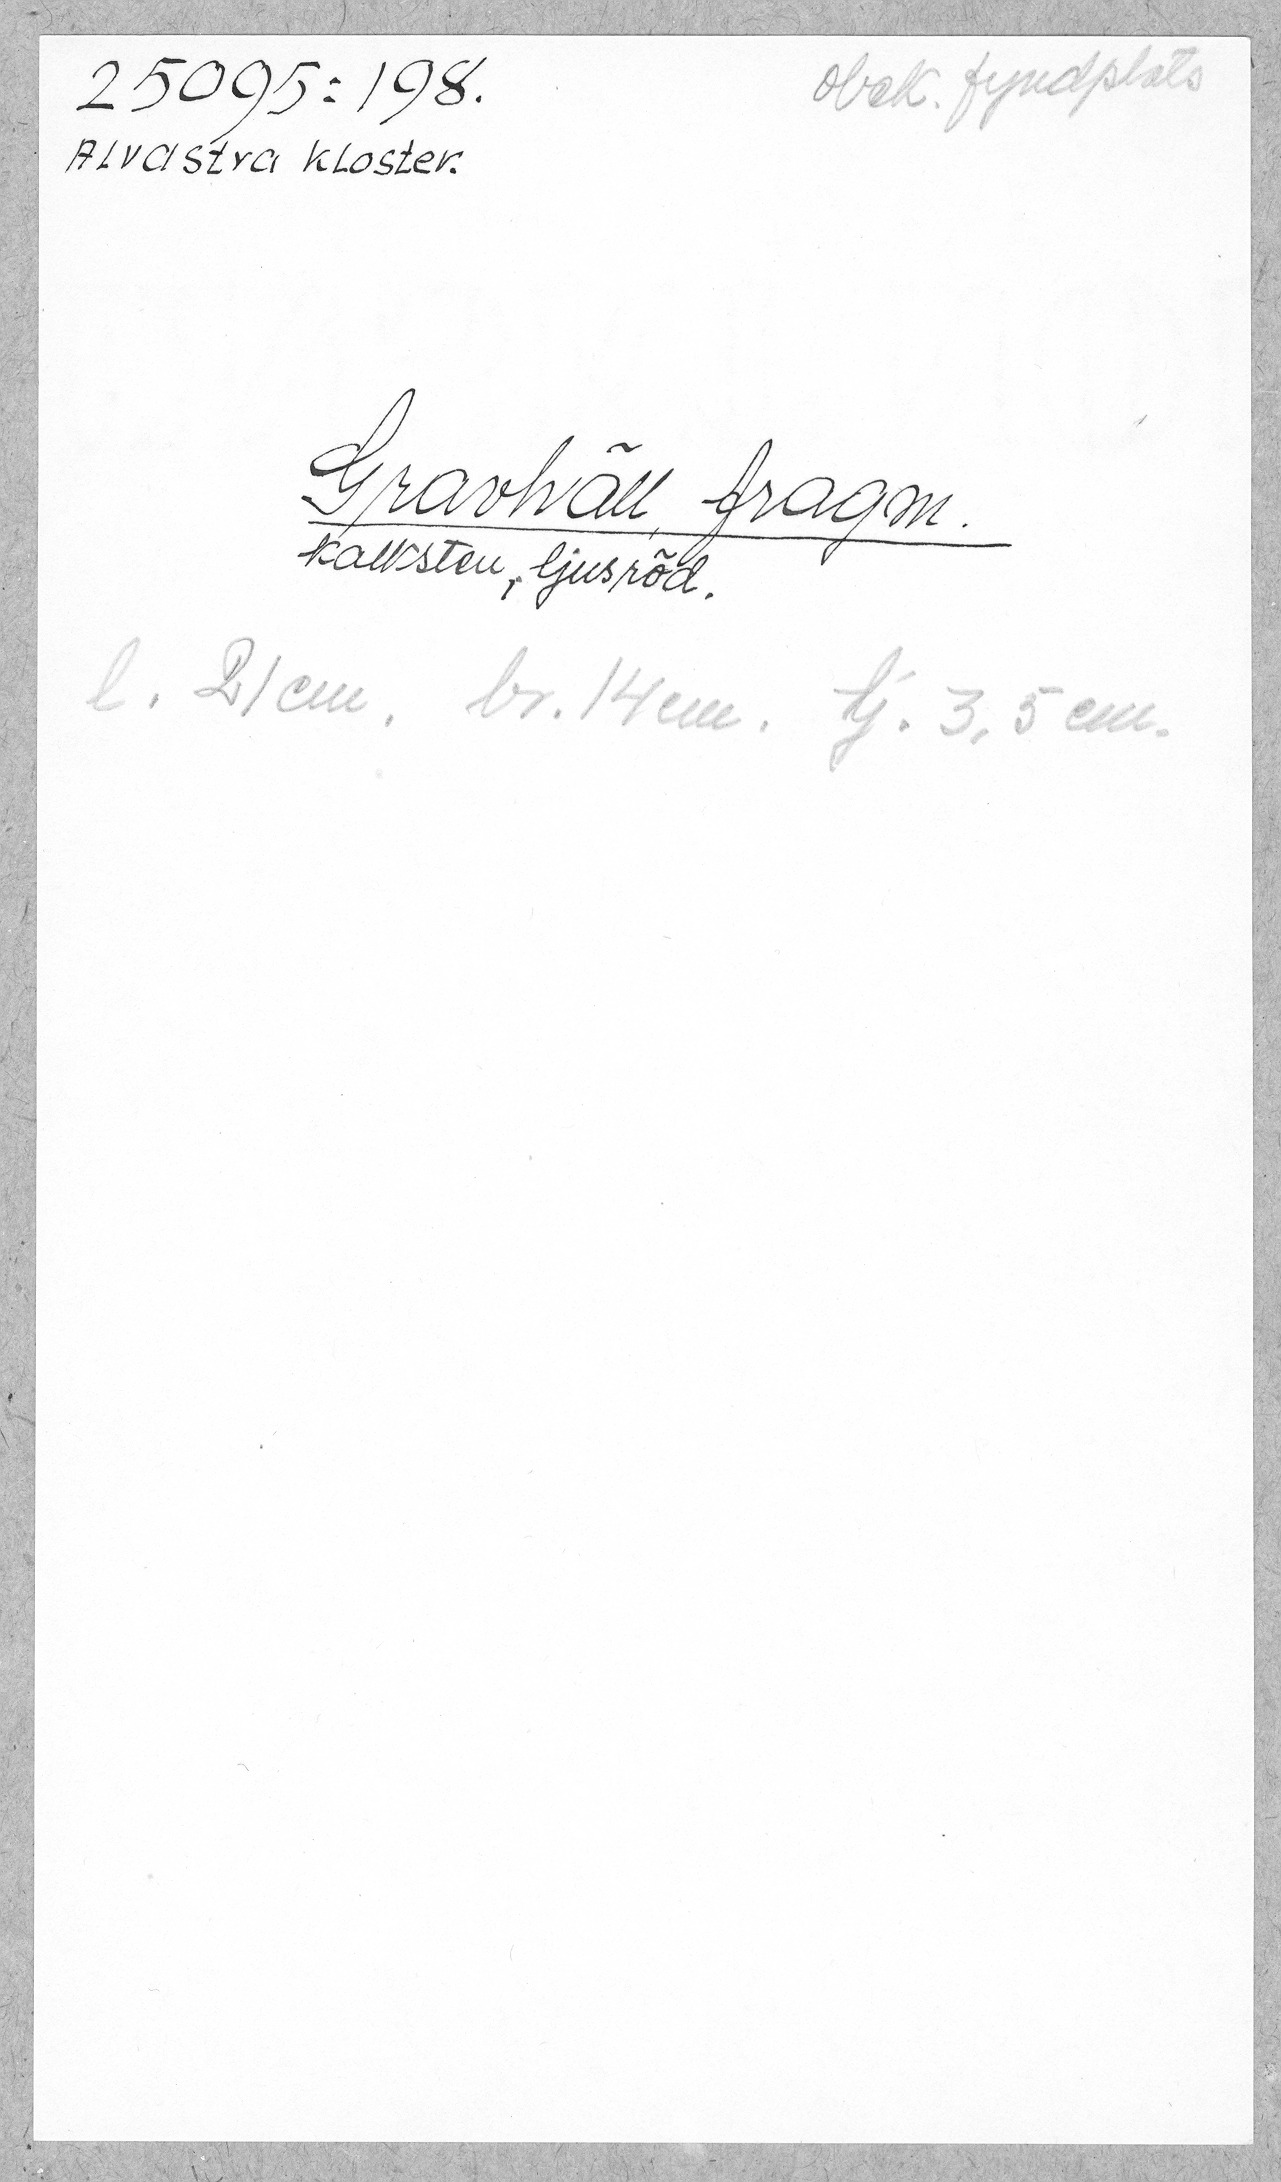 25095:198.
obek. fyndplats
Alvastra kloster.
Gravhäll, fragm.
kalksten, ljusröd.
l. 21 cm. br. 14 cm. tj. 3,5 cm.